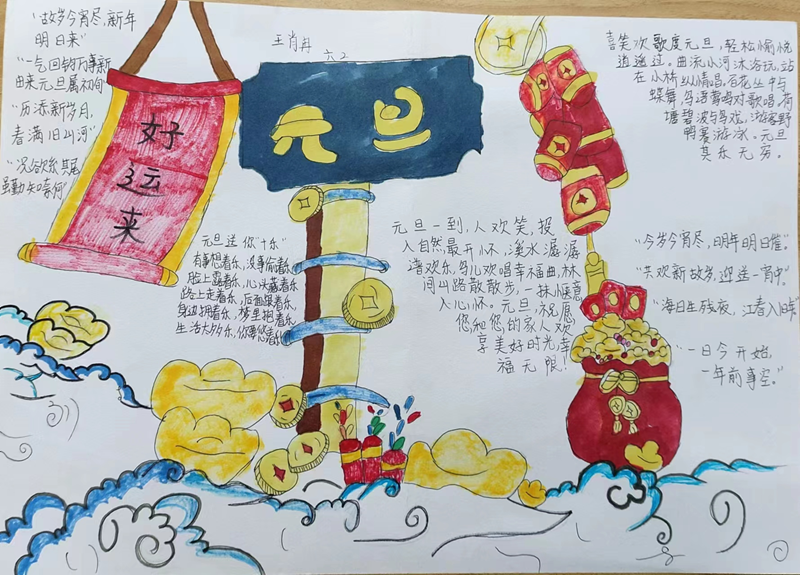 "故岁今宵尽,新年
明日来"
"一气回钧万事新
由来元旦属初旬
"历添新岁月,
春满旧山河"
"况欲系其尾
虽勤知奈何"
好
运
来
王肖冉
六2
元旦
元旦送你"十乐"
有事想着乐,没事偷着乐
脸上露着乐,心头藏着乐
路上走着乐,后面跟着乐
身边拥着乐,梦里抱着乐
生活大多乐,你要您着乐
元旦一到,人欢笑,投
入自然最开怀,溪水潺潺
谱欢乐,鸟儿欢唱幸福曲,林
间小路散散步,一抹惬意
入心怀。元旦,祝愿
您和您的家人欢
享美好时光幸
福无限!
喜笑欢歌度元旦,轻松愉悦
逍遥过。曲流小河沐浴玩,站
在小桥纵情唱。百花丛中与
蝶舞,鸟语莺鸣对歌唱。荷
塘碧波与鸟戏,游客野
鸭裹游冰。元旦
其乐无穷。
"今岁今宵尽,明年明日催。"
"共欢新故岁,迎送一宵中。"
"海日生残夜,江春入旧年"
"一日今开始,
一年前事空。"